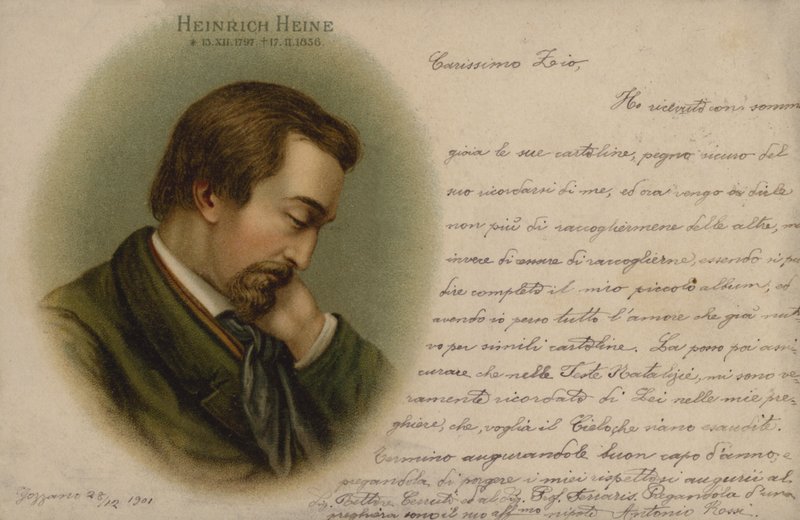 HEINRICH HEINE
* 13.XII.1797 †17.II.1856.
Carissimo Zio,
Ho ricevuto con somm
gioia le sue cartoline, pegno sicuro del
suo ricordarsi di me, ed ora vengo a dirle
non più di raccogliermene delle altre, m
invece di di raccoglierne, essendo si può
dire completo il mio piccolo album, ed
avendo io perso tutto l'amore che già nut
vo per simili cartoline. La posso poi assi
curare che nelle Feste Natalizie, mi sono ve
ramente ricordato di Lei nelle mie pre
ghiere, che, voglia il Cielo, che siano esaudite.
Termino augurandole buon capo d'anno, e
pregandola di porgere i miei rispettosi augurii al
ed al Sig. Prof. Ferraris. Pregandola d'una
preghiera sono il suo aff.mo nipote Antonio Rossi.
28/12 1901